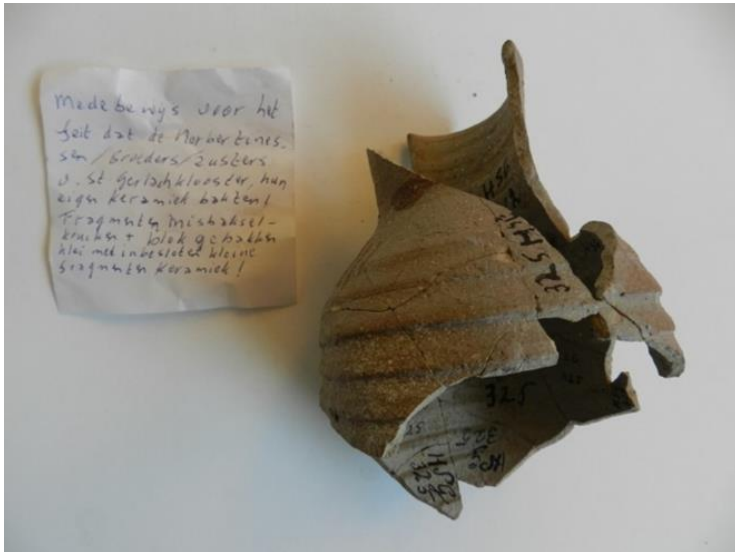 Medebewijs voor het
feit dat de Norbertines-
sen/Broeders/zusters
v. St Gerlachklooster, hun
eigen keramiek bakten!
Fragmenten misbaksel-
kruiken + blok gebakken
klei met inbesloten kleine
fragmenten keramiek!
HSG
325 HSG
325
325
HSG
325